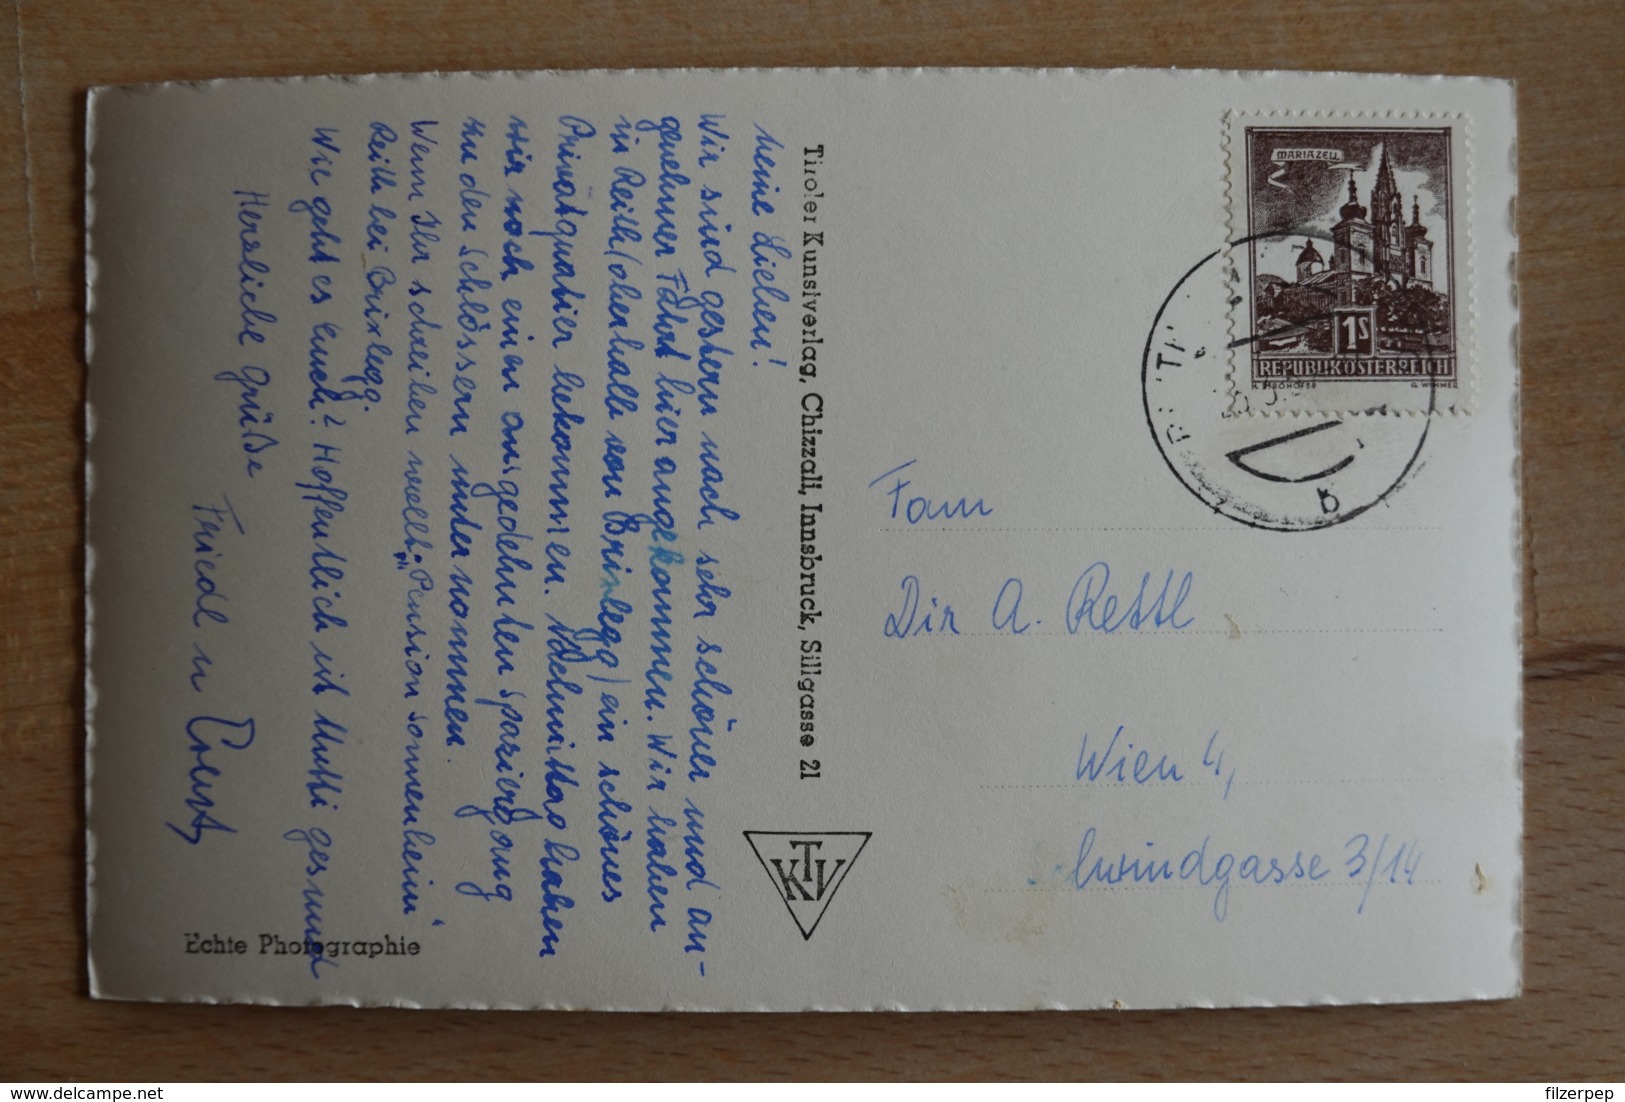 Meine Lieben!
Wir sind gestern nach sehr schöner und an-
genehmer Fahrt hier angekommen. Wir haben
in Reith (oberhalb von Brixlegg) ein schönes
Privatquatier bekommen. Nachmittag haben
wir noch einen ausgedehnten Spaziergang
zu den Schlössern unternommen.
Wenn Ihr schreiben wollt: "Pension Sonnenheim"
Reith bei Brixlegg.
Wie geht es Euch? Hoffentlich ist Mutti gesund
Herzliche Grüße
Friedl u
Echte Photographie
Tiroler Kunstverlag, Chizzali, Innsbruck, Sillgasse 21
KTV
MARIAZELL
1S
REPUBLIK ÖSTERREICH
G. WIMMER
b
Fam
Dir A. Rettl
Wien 4,
Schwindgasse 3/14
filzerpep